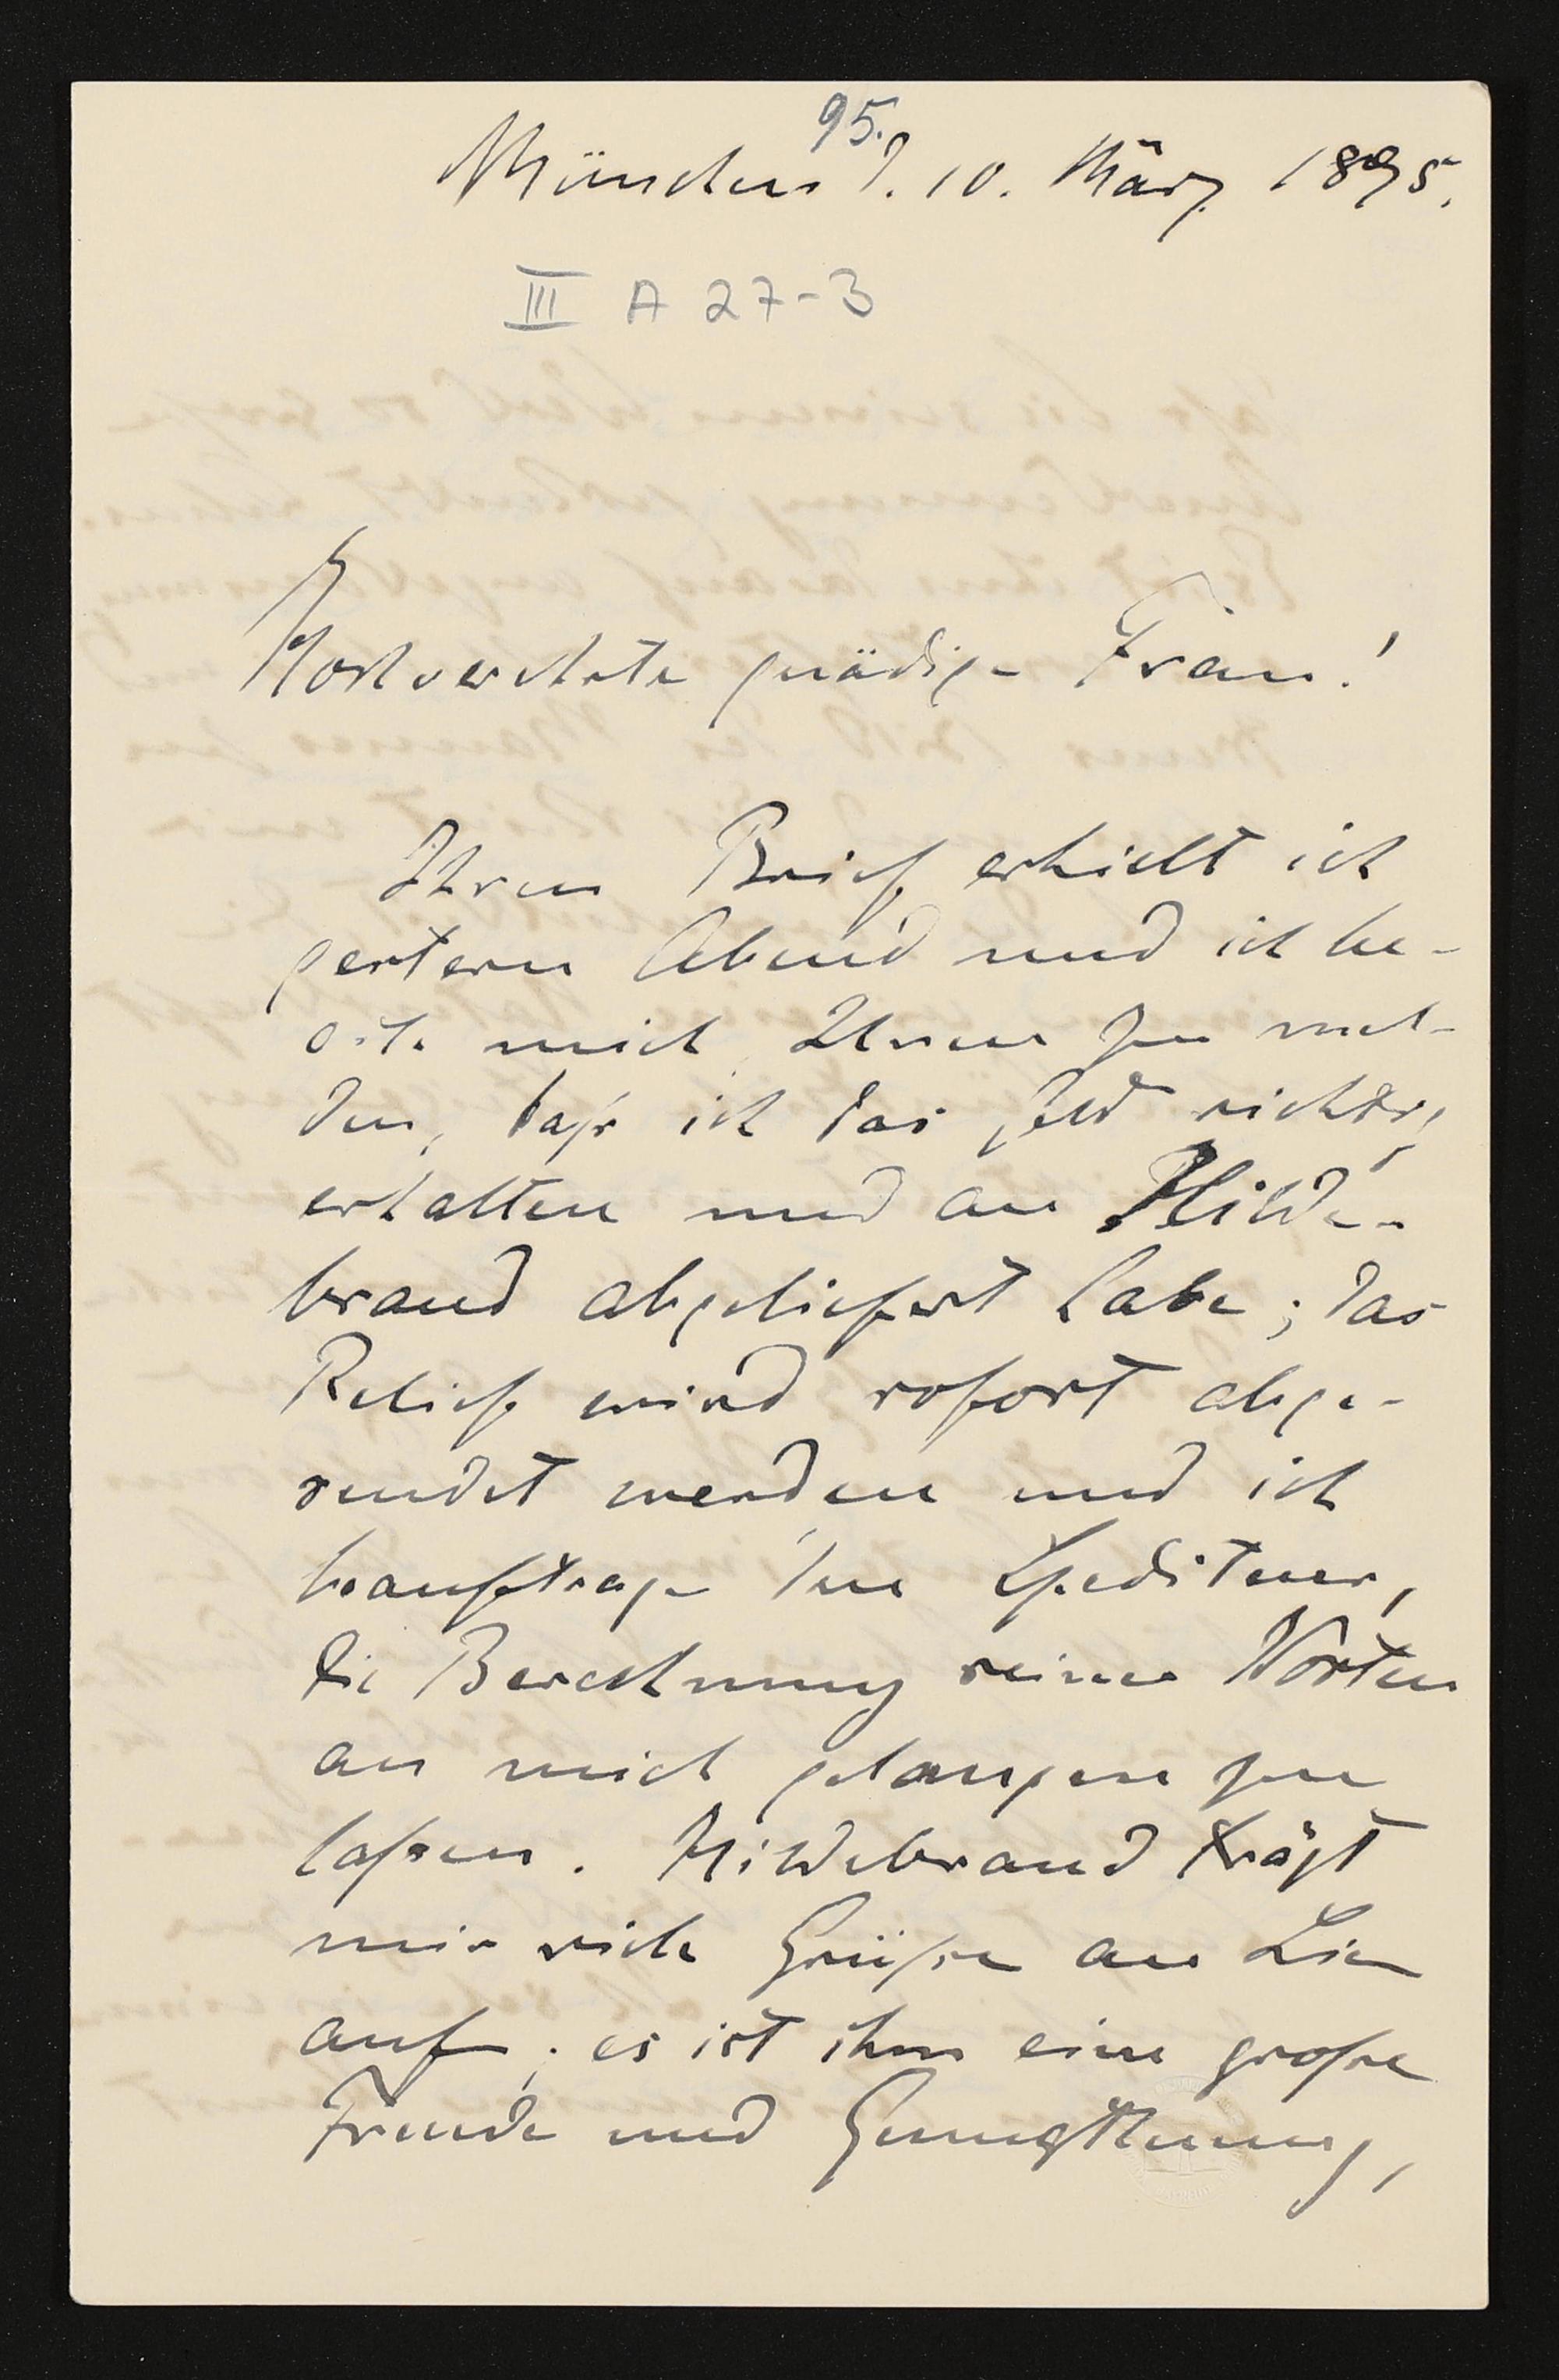 95.
München d. 10. März 1895.
III A 27-3
Hochverehrte gnädige Frau!
Ihren Brief erhielt ich
gestern Abend und ich be-
eile mich, Ihnen zu mel-
den, daſs ich das Geld richtig
erhalten und an Hilde-
brand abgeliefert habe; das
Relief wird sofort abge-
sendet werden und ich
beauftrage den Spediteur,
die Berechnung seiner Kosten
an mich gelangen zu
laſsen. Hildebrand trägt
mir viele Grüſse an Sie
auf; es ist ihm eine groſse
Freude und Genugthuung,